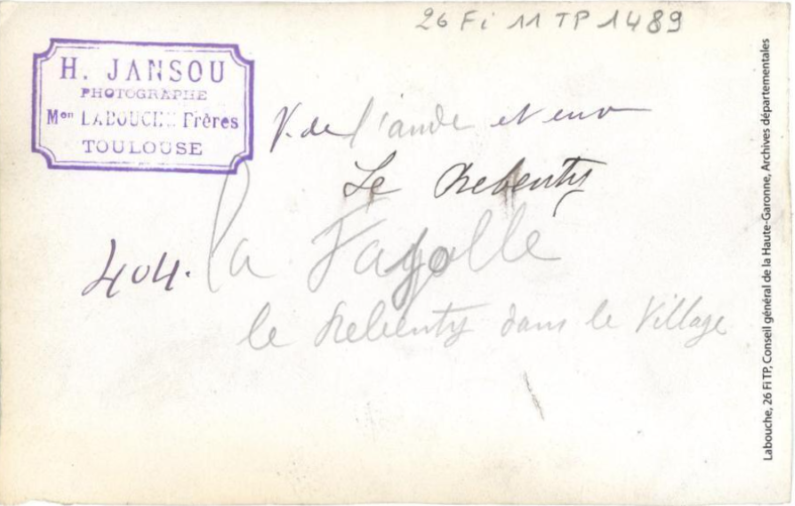 26 Fi 11 TP 1489
H. JANSOU
PHOTOGRAPHE
Mon LABOUCHE Frères
TOULOUSE
V. de l'aude et env
Le Rebenty
404.
la Fajolle
le Rebenty dans le Village
Labouche, 26 Fi TP, Conseil général de la Haute-Garonne, Archives départementales